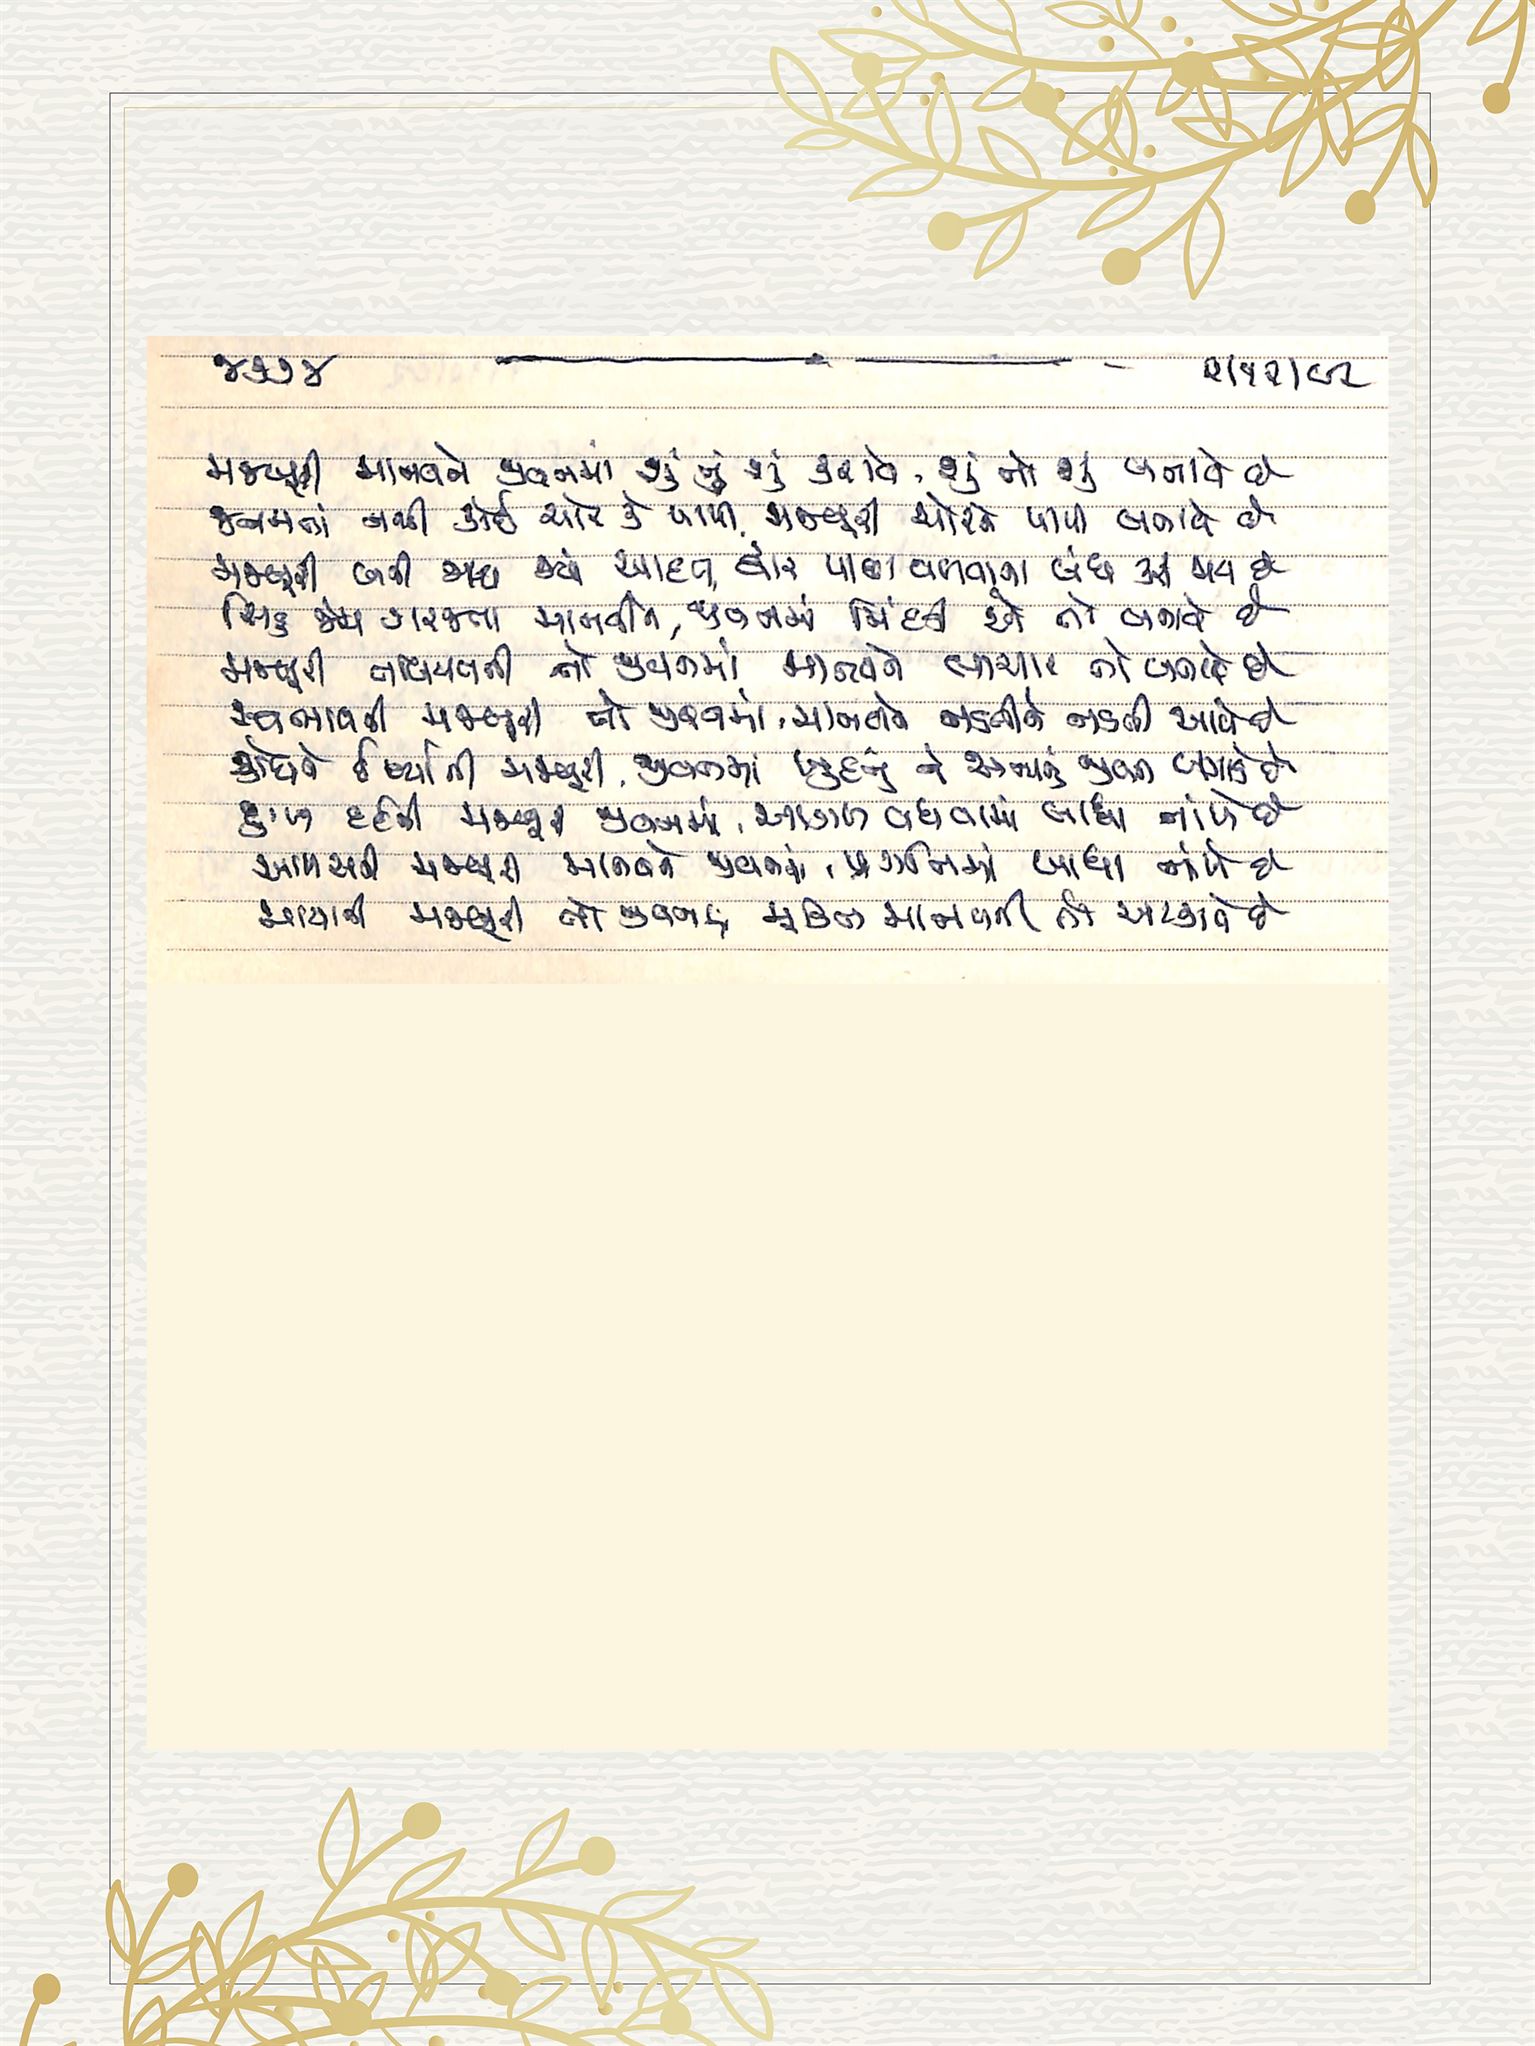 ૪૩૭૪ ૨/૧૨/૯૨
મજબૂરી માનવને જીવનમાં શું નું શું કરાવે, શું નો શું બનાવે છે
જનમતાં નથી કોઈ ચોર કે પાપી, મજબૂરી ચોરને પાપી બનાવે છે
મજબૂરી બની જાય જ્યાં આદત, દ્વાર પાછા વળવાના બંધ થઈ જાય છે
સિંહ જેમ ગરજતા માનવીને, જીવનમાં મિંદડી એ તો બનાવે છે
મજબૂરી લાલચની તો જીવનમાં માનવને લાચાર તો બનાવે છે
સ્વભાવની મજબૂરી તો જીવનમાં, માનવીને નડતીને નડતી આવે છે
ક્રોધને ઈર્ષ્યાની મજબૂરી, જીવનમાં ખુદનું ને અન્યનું જીવન બગાડે છે
દુઃખ દર્દની મજબૂરી જીવનમાં, આગળ વધવામાં બાધા નાંખે છે
આળસની મજબૂરી માનવને જીવનમાં, પ્રગતિમાં બાધા નાંખે છે
માયાની મજબૂરી તો જીવનમાં, મુક્તિ માનવની તો અટકાવે છે